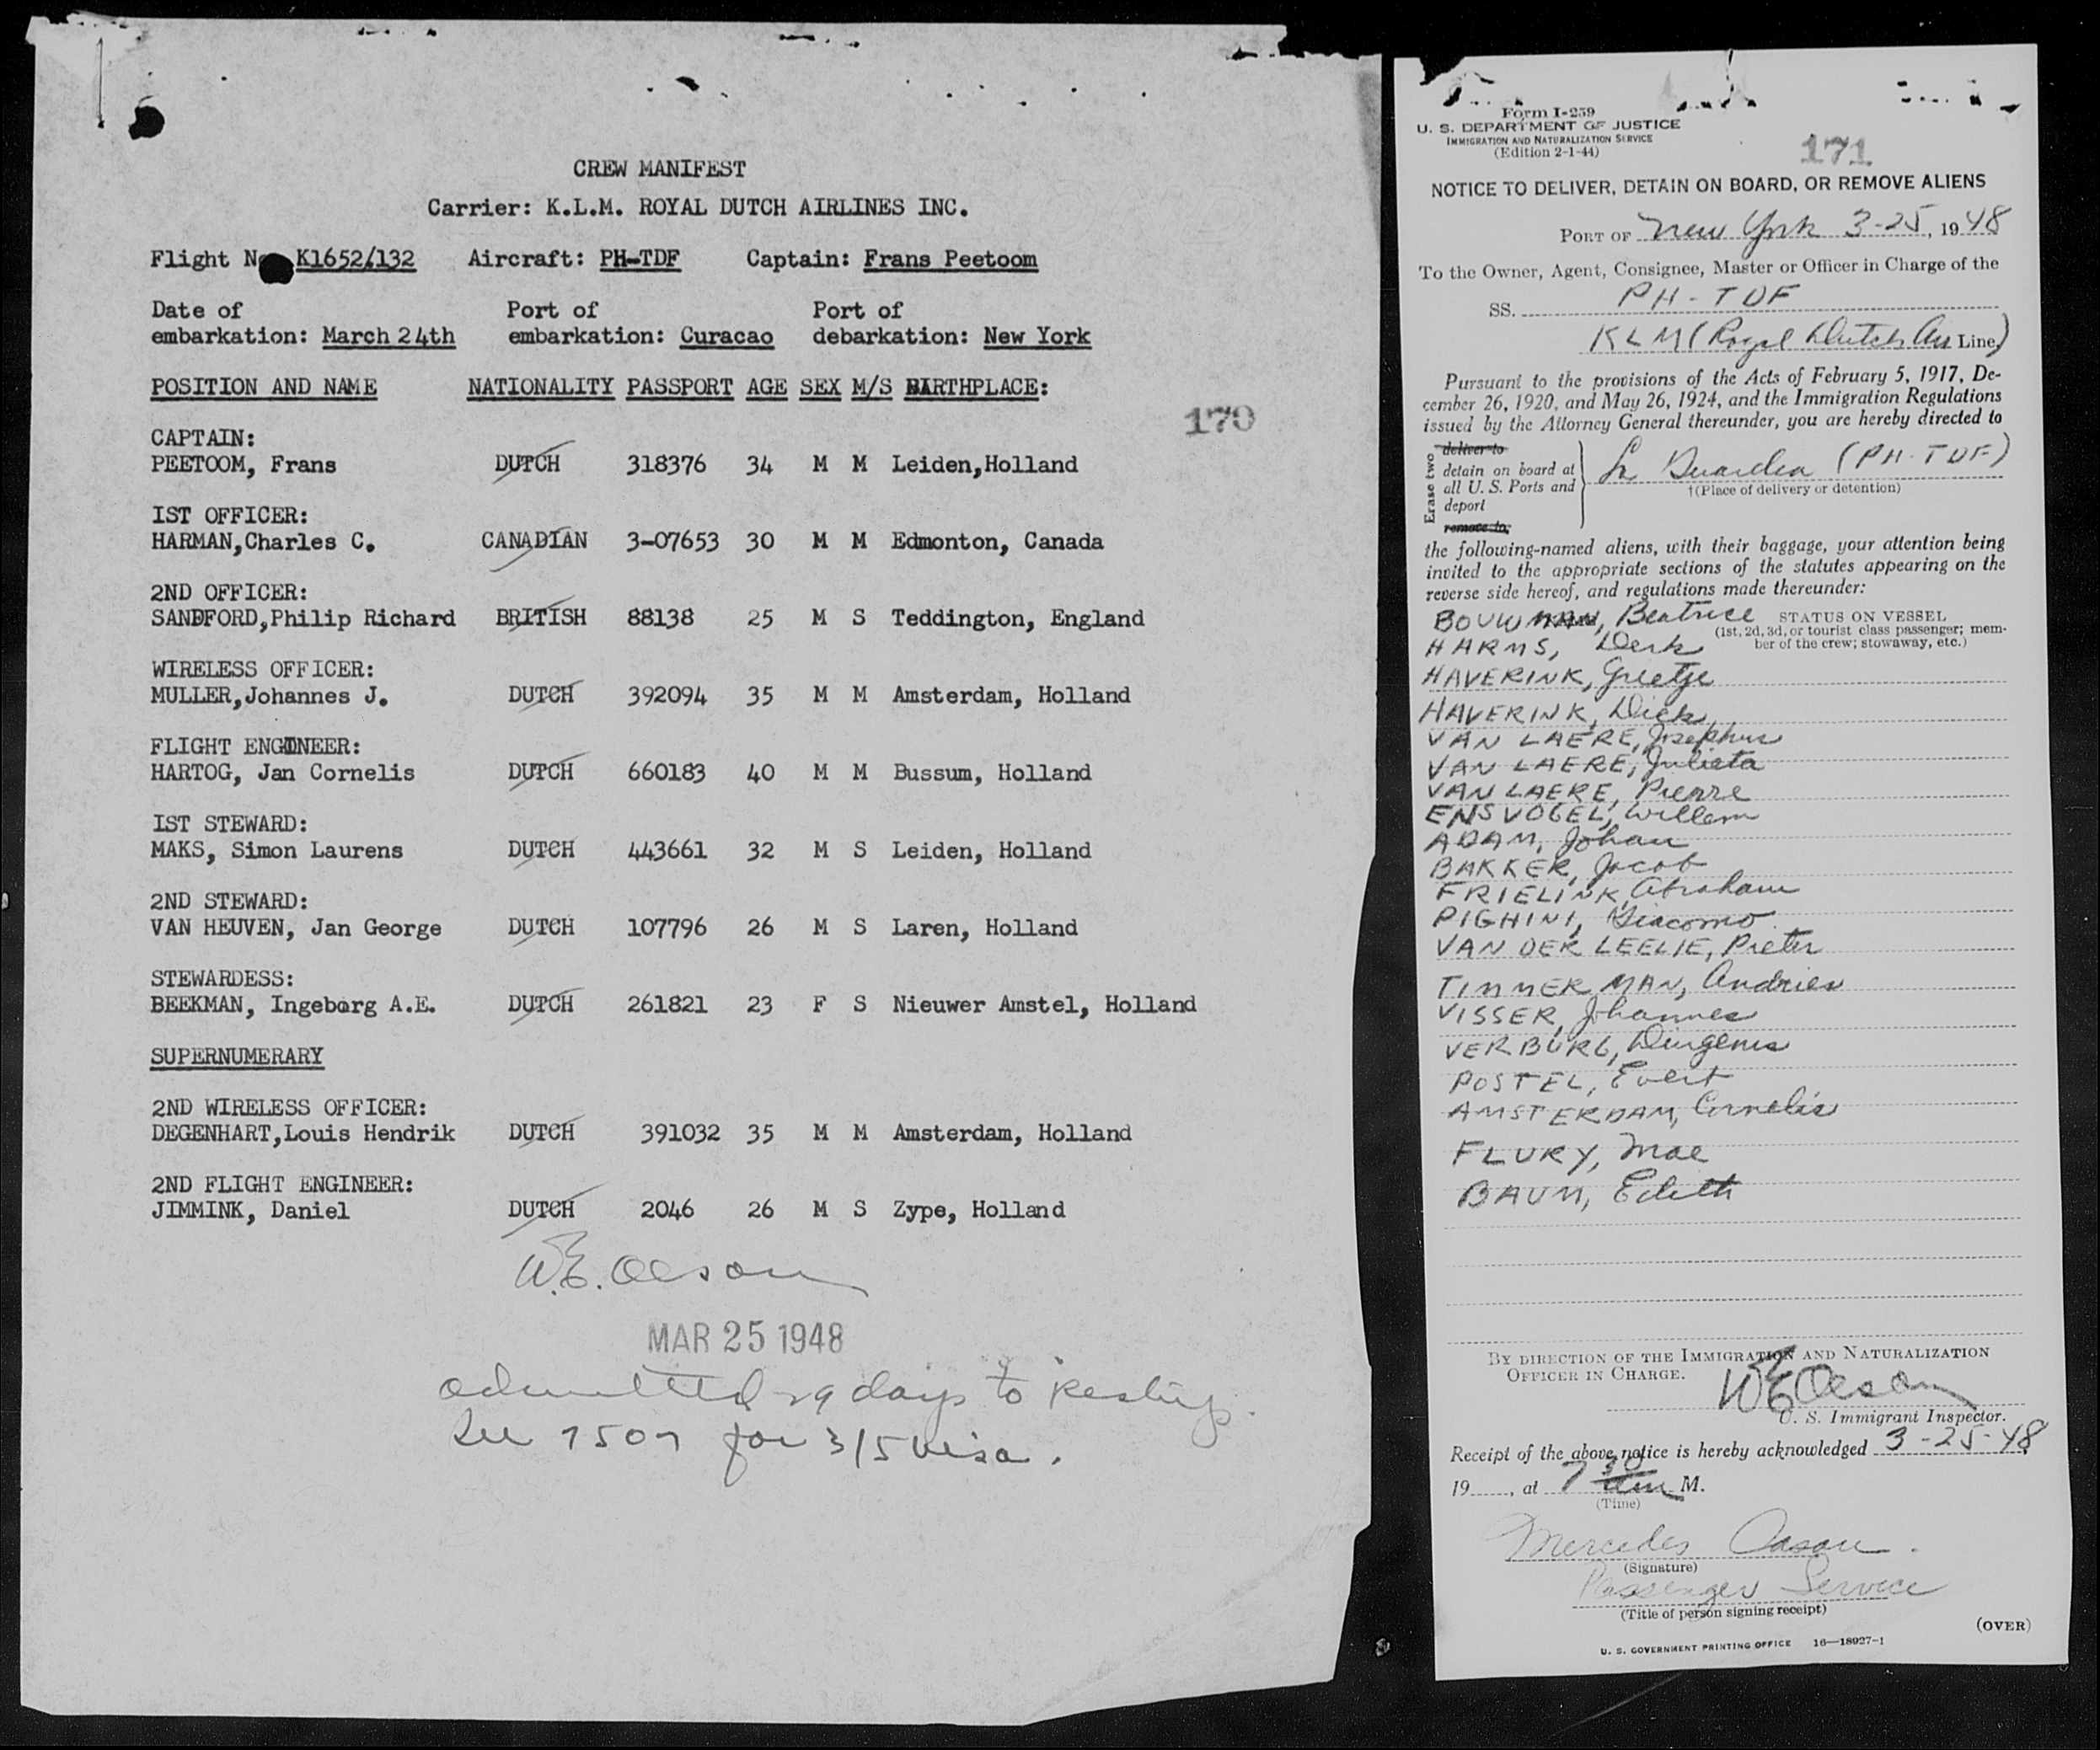 CREW MANIFEST
Carrier: K.L.M. ROYAL DUTCH AIRLINES INC.
Flight N K1652/132 Aircraft: PH-TDF Captain: Frans Peetoom
Date of Port of Port of
embarkation: March 24th embarkation: Curacao debarkation: New York
POSITION AND NAME NATIONALITY PASSPORT AGE SEX M/S BIRTHPLACE:
170
CAPTAIN:
PEETOOM, Frans DUTCH 318376 34 M M Leiden,Holland
IST OFFICER:
HARMAN,Charles C. CANADIAN 3-07653 30 M M Edmonton, Canada
2ND OFFICER:
SANDFORD,Philip Richard BRITISH 88138 25 M S Teddington, England
WIRELESS OFFICER:
MULLER,Johannes J. DUTCH 392094 35 M M Amsterdam, Holland
FLIGHT ENGINEER:
HARTOG, Jan Cornelis DUTCH 660183 40 M M Bussum, Holland
IST STEWARD:
MAKS, Simon Laurens DUTCH 443661 32 M S Leiden, Holland
2ND STEWARD:
VAN HEUVEN, Jan George DUTCH 107796 26 M S Laren, Holland
STEWARDESS:
BEEKMAN, Ingeborg A.E. DUTCH 261821 23 F S Nieuwer Amstel, Holland
SUPERNUMERARY
2ND WIRELESS OFFICER:
DEGENHART,Louis Hendrik DUTCH 391032 35 M M Amsterdam, Holland
2ND FLIGHT ENGINEER:
JIMMINK, Daniel DUTCH 2046 26 M S Zype, Holland
W.E. Olson
MAR 25 1948
admitted 29 days to
See 7507 for 3/5 visa.
Form I-259
U. S. DEPARTMENT OF JUSTICE
IMMIGRATION AND NATURALIZATION SERVICE
(Edition 2-1-44)
171
NOTICE TO DELIVER, DETAIN ON BOARD, OR REMOVE ALIENS
PORT OF New York 3-25, 1948
To the Owner, Agent, Consignee, Master or Officer in Charge of the
SS. PH-TDF
KLM (Royal Dutch Air Line)
Pursuant to the provisions of the Acts of February 5, 1917, De-
cember 26, 1920, and May 26, 1924, and the Immigration Regulations
issued by the Attorney General thereunder, you are hereby directed to
Erase two
deliver to
detain on board at
all U. S. Ports and
deport
remove to,
La Guardia (PH-TDF)
†(Place of delivery or detention)
the following-named aliens, with their baggage, your attention being
invited to the appropriate sections of the statutes appearing on the
reverse side hereof, and regulations made thereunder:
BOUWMAN, Beatrice STATUS ON VESSEL
(1st, 2d, 3d, or tourist class passenger; mem-
ber of the crew; stowaway, etc.)
HARMS, Derk
HAVERINK, Grietje
HAVERINK, Dick
VAN LAERE, Josephus
VAN LAERE, Julieta
VAN LAERE, Pierre
ENSVOGEL, Willem
ADAM, Johan
BAKKER, Jacob
FRIELINK, Abraham
PIGHINI, Giacomo
VAN DER LEELIE, Pieter
TIMMERMAN, Andries
VISSER, Johannes
VERBURG, Dingenis
POSTEL, Evert
AMSTERDAM, Cornelis
FLURY, Mae
BAUM, Edith
BY DIRECTION OF THE IMMIGRATION AND NATURALIZATION
OFFICER IN CHARGE.
WE Olson
U. S. Immigrant Inspector.
Receipt of the above notice is hereby acknowledged 3-25-48
19, at 7 30 am M.
(Time)
Mercedes
(Signature)
Passenger Service
(Title of person signing receipt)
(OVER)
U. S. GOVERNMENT PRINTING OFFICE 16—18027-1